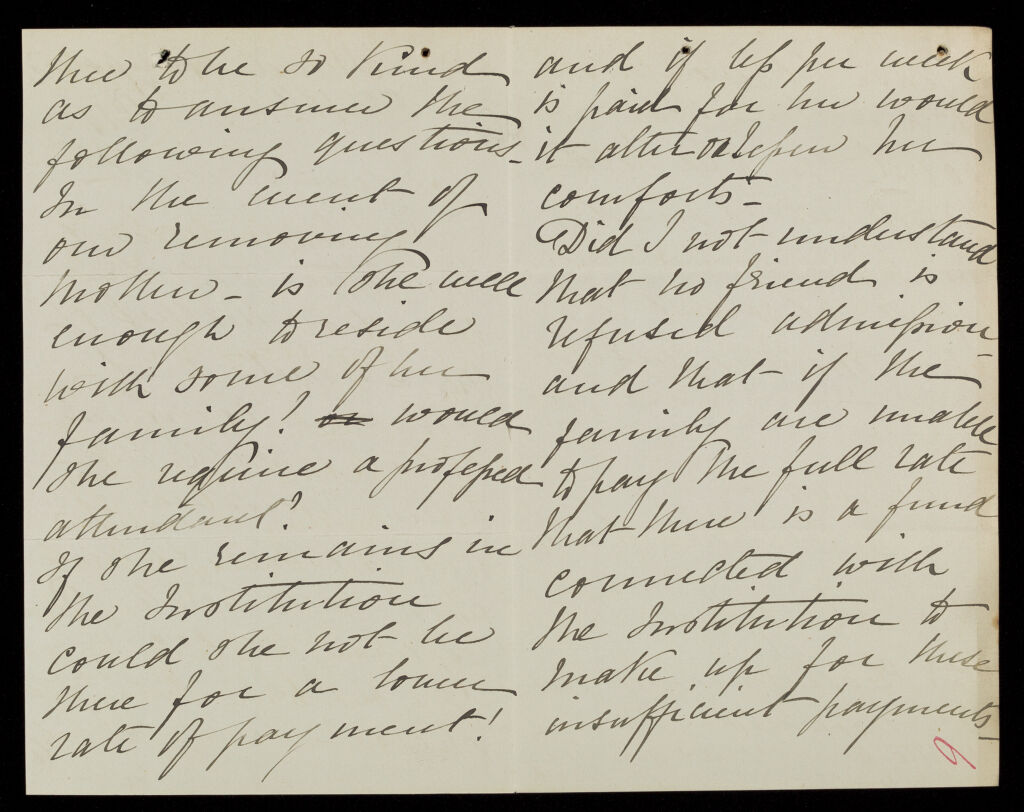 thee to be so kind
as to answer the
following questions -
In the event of
our removing
Mother - is she well
enough to reside
with some of her
family? or would
she require a professed
attendant?
If she remains in
the Institution
could she not be
there for a lower
rate of payment!
and if less per week
is paid for her would
it alter or lessen her
comforts -
Did I not understand
that no friend is
refused admission -
and that if the
family are unable
to pay the full rate
that there is a fund
connected with
the Institution to
make up for these
insufficient payments -
9